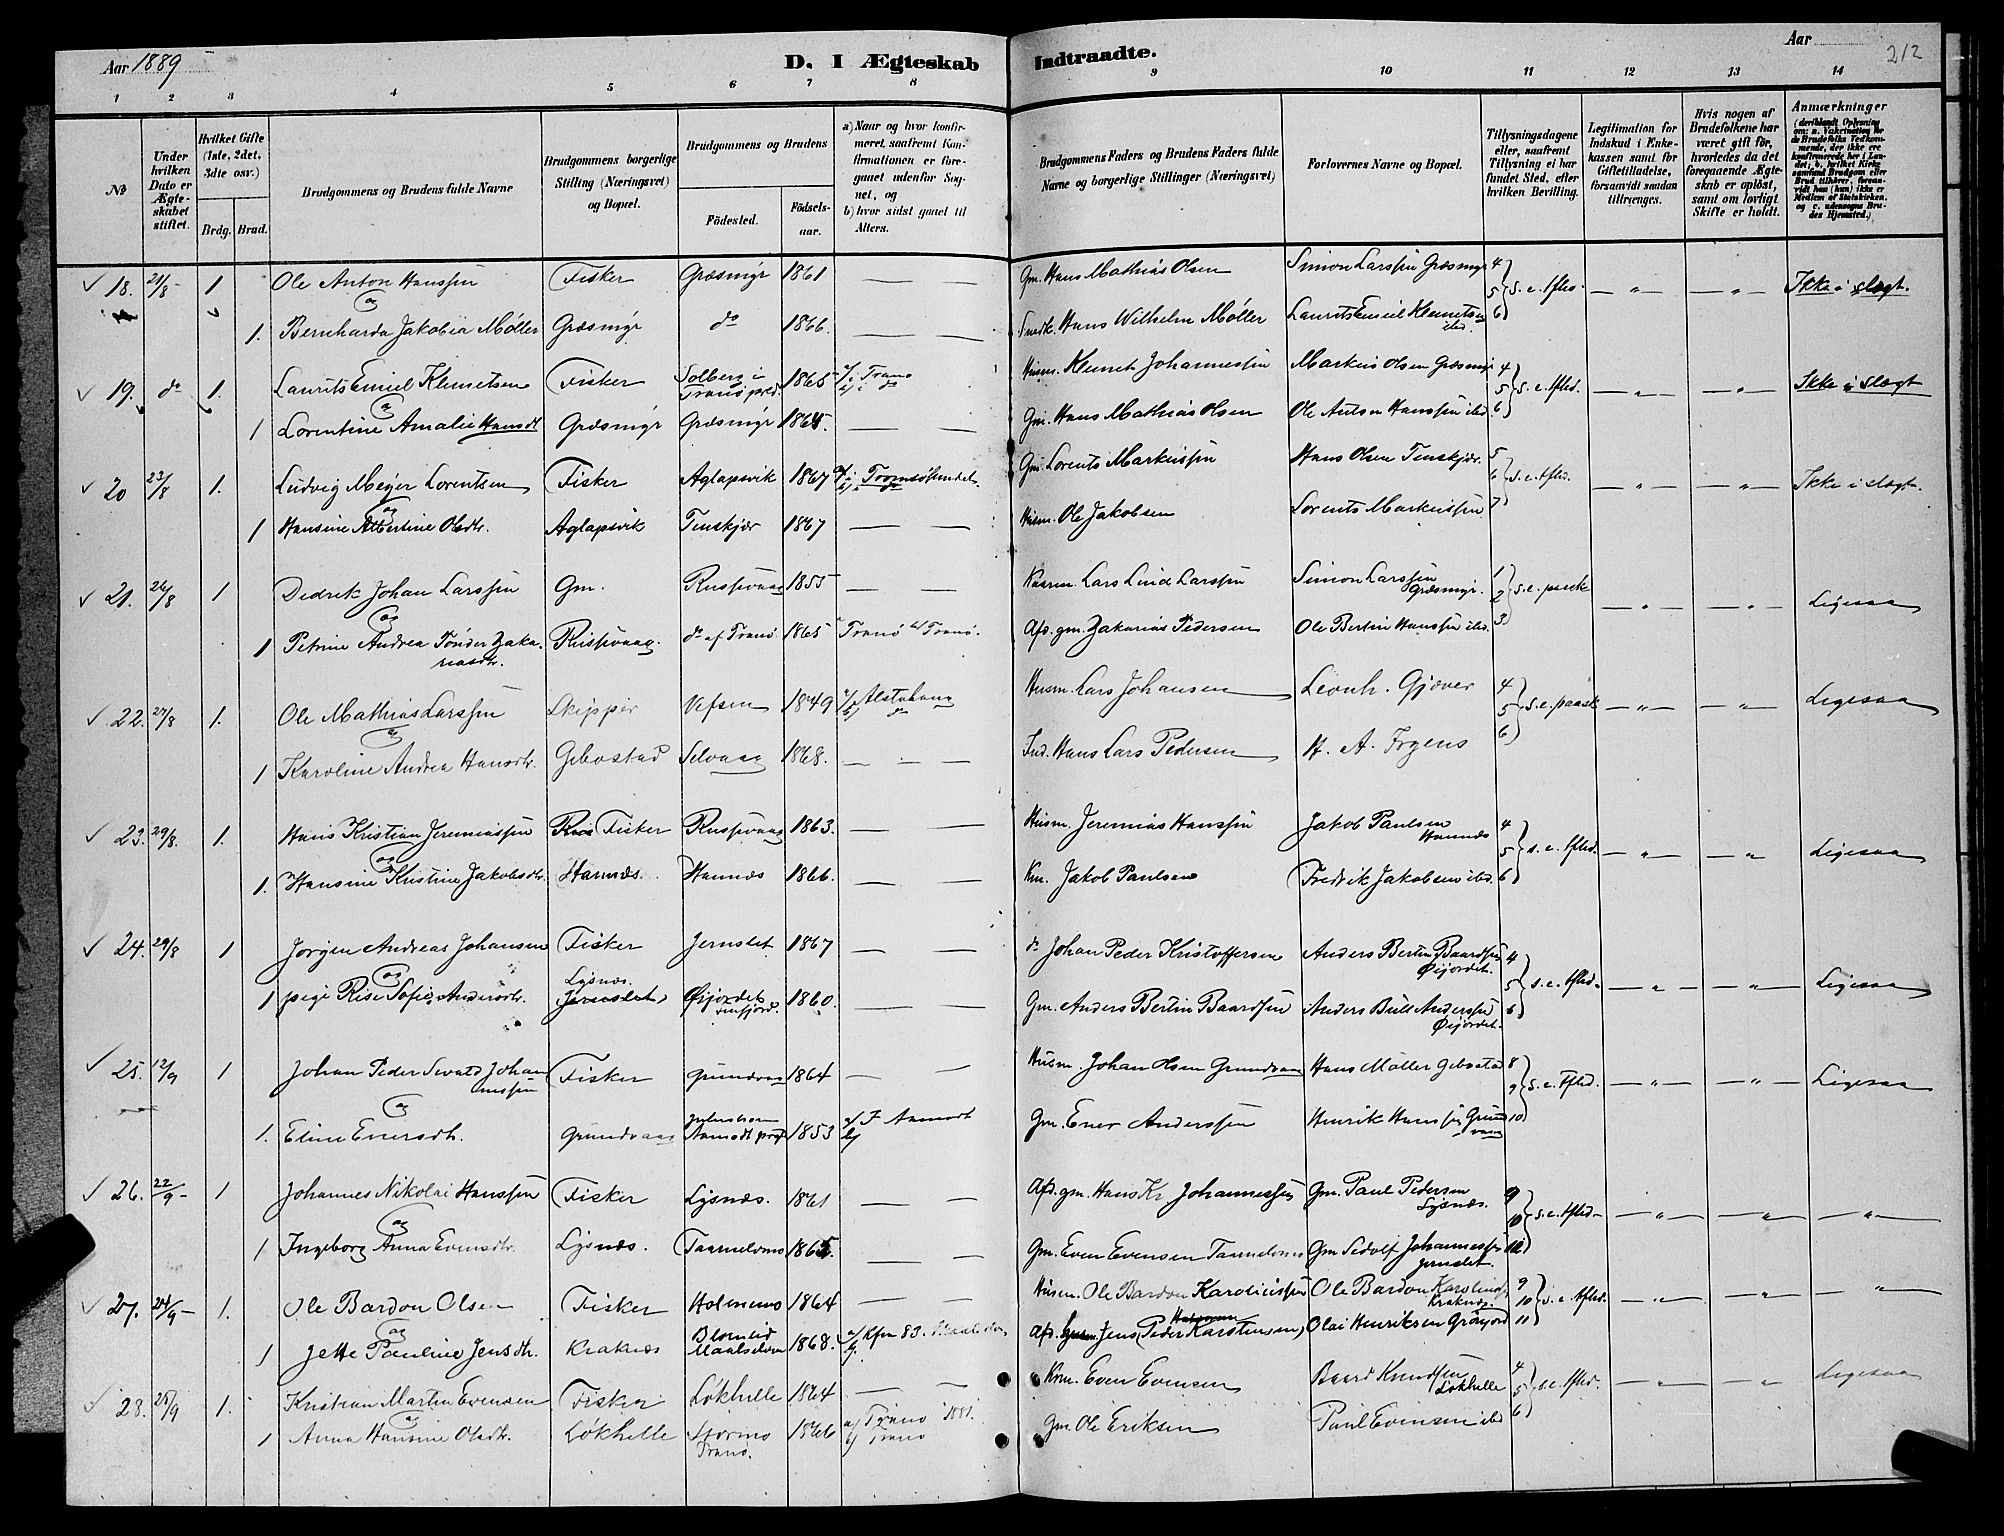 Aar 1889
D. I Ægteskab Indtraadte.
Aar
212
1 2 3 4 5 6 7 8 9 10 11 12 13 14
No
Under hvilken Dato er Ægteskabet stiftet.
Hvilket Gifte (1ste, 2det, 3die osv.)
Brdg. Brud.
Brudgommens og Brudens fulde Navne
Brudgommens borgerlige Stilling (Næringsvei) og Bopæl.
Brudgommens og Brudens
Fødested.
Fødselsaar.
a) Naar og hvor konfirmeret, saafremt Konfirmationen er foregaaet udenfor Sognet, og
b) hvor sidst gaaet til Alters.
Brudgommens Faders og Brudens Faders fulde Navne og borgerlige Stillinger (Næringsvei)
Forlovernes Navne og Bopæl.
Tillysningsdagene eller, saafremt Tillysning ei har fundet Sted, efter hvilken Bevilling.
Legitimation for Indskud i Enkekassen samt for Giftetilladelse, forsaavidt saadan tiltrænges.
Hvis nogen af Brudefolkene har været gift før, hvorledes da det foregaaende Ægteskab er opløst, samt om lovligt Skifte er holdt.
Anmærkninger
18. 21/8 1 Ole Anton Hanssen Fisker Græsmyr 1861 — — Gm. Hans Mathias Olsen Simon Larssen Græsmyr 4 5 6 s. e. tfled. — " — — " — Ikke i slægt.
og
1. Bernharda Jakobia Møller Græsmyr do 1866. — — Hans Wilhelm Møller Laurits Emil Klemetsen ibd.
19. do 1. Laurits Emil Klemetsen Fisker Solberg i Tranø pred. 1865 a/ i Tranø b/ i do Husm. Klemet Johannessen Markus Olsen Græsmyr 4 5 6 s. e. tfled. — " — — " — Ikke i slægt
og
1 Lorentine Amalie Hansdt Græsmyr Græsmyr 1865. — — Gm. Hans Mathias Olsen Ole Anton Hanssen ibd.
20 23/8 1. Ludvig Meyer Lorentsen Fisker Aglapsvik 1867 Tromsøsundet. Gm. Lorents Markussen Hans Olsen Tenskjær. 5 6 7 s. e. tfled. — " — — " — Ikke i slægt.
og
1 Hansine Albertine Olsdtr. Aglapsvik Tenskjær 1867 — — Husm. Ole Jakobsen Lorents Markussen
21. 26/8 1 Didrik Johan Larssen Gm. Russevaag 1855 — — Lars Lind Larssen Simon Larssen Græsmyr. 1 2 3 s. e. paask — " — — " — Ligesaa
og
1 Petrine Andrea Tønder Zakariasdtr. Russevaag. do af Tranø 1865 a Tranø b/ Tranø. Afd. gm. Zakarias Pedersen Ole Bertin Hanssen ibd.
22. 27/8 1. Ole Mathias Larssen Skipper Vefsen 1849 a/ Alstahaug b/ do Husm. Lars Johansen Leonh. Gjæver 4 5 6 s. e. paask — " — — " — Ligesaa
og
1 Karoline Andrea Hansdtr. Gibostad Selvaag 1868. — — — Ind. Hans Lars Pedersen H. A. Irgens
23. 29/8. 1. Hans Kristian Jeremiassen Fisker Russevaag 1863. — — Husm. Jeremias Hanssen Jakob Paulsen Hannæs 4 5 6 s. e. tfled. — " — — " — Ligesaa
og
1. Hansine Kristine Jakobsdtr. Hannæs. Hannæs 1866. — — Jakob Paulsen Fredrik Jakobsen ibd.
24. 29/8 1 Jørgen Andreas Johansen Fisker Jernslet 1867 — — do Johan Peder Kristoffersen Anders Bertin Baardsen Øijordet. 4 5 6 s. e. tfled. — " — — " — Ligesaa
og
1 pige Risi Sofie Andersdtr. Lysnæs. Jernslet Øijordet 1860. — — Gm. Anders Bertin Baardsen Anders Bull Anderssen Øijordet.
25. 12/9 1 Johan Peder Sivald Johannessen Fisker Grundvaag 1864 — — Husm. Johan Olsen Grundvaag Hans Møller Gibostad 8 9 10 s. e. tfled. — " — — " — Ligesaa
og
1. Eline Enersdtr. Grundvaag 1853 Gm. Ener Anderssen Henrik Hanssen Grundvaag
26. 22/9 1 Johannes Nikolai Hanssen Fisker Lysnæs. 1861 — — Afd. gm. Hans Kr. Johannessen Gm. Paul Pedersen Lysnæs. 9 10 s. e. tfled — " — — " — — " —
og
1 Ingeborg Anna Evensdtr. Lysnæs. Taarnelvmo 1865. — — Gm. Even Evensen Taarnelvmo Gm Sedolf Johannessen Jernslet.
27. 24/9 1. Ole Bardon Olsen Fisker Holmenes 1864 — — Husm. Ole Bardon Karoliussen Ole Bardon Kraknæs. 9 10 11 s. e. tfled. — " — — " — "
og
1 Jette Pauline Jensdtr. Kraknæs Blomlid Maalselven 1868. a/ Kfm 83. Afd. Jens (Peder Karstensen) Olai Henriksen Grønjord
28. 25/9 1. Kristian Martin Evensen Fisker Løkhelle 1864 — — Even Evensen Baard Knudsen Løkhelle 4 5 6 s. e. tfled. — " — — " — Ligesaa
og
1 Anna Hansine Olsdtr. Løkhelle Stormo Tranø. 1866 a/ Tranø 1881. b/ Tranø Gm. Ole Eriksen Paul Evensen ibd